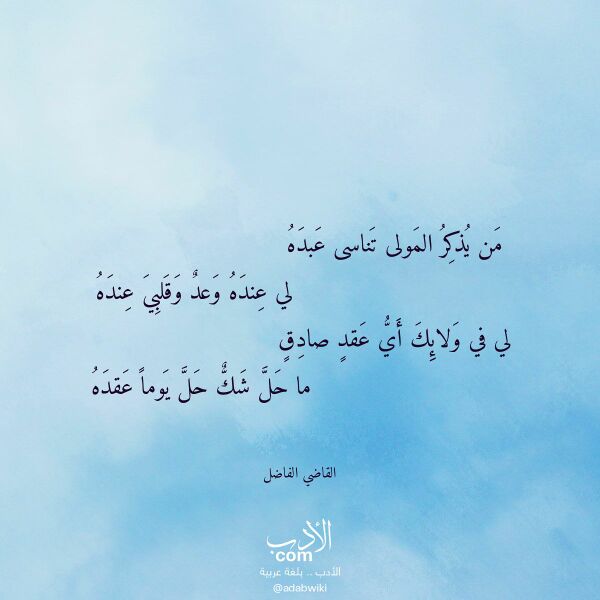 مَن يُذكِرُ المَولى تَناسى عَبدَهُ
لي عِندَهُ وَعدٌ وَقَلبِيَ عِندَهُ
لي في وَلائِكَ أَيُّ عَقدٍ صادِقٍ
ما حَلَّ شَكٌّ حَلَّ يَوماً عَقدَهُ
القاضي الفاضل
الأدب
com
الأدب .. بلغة عربية
@adabwiki